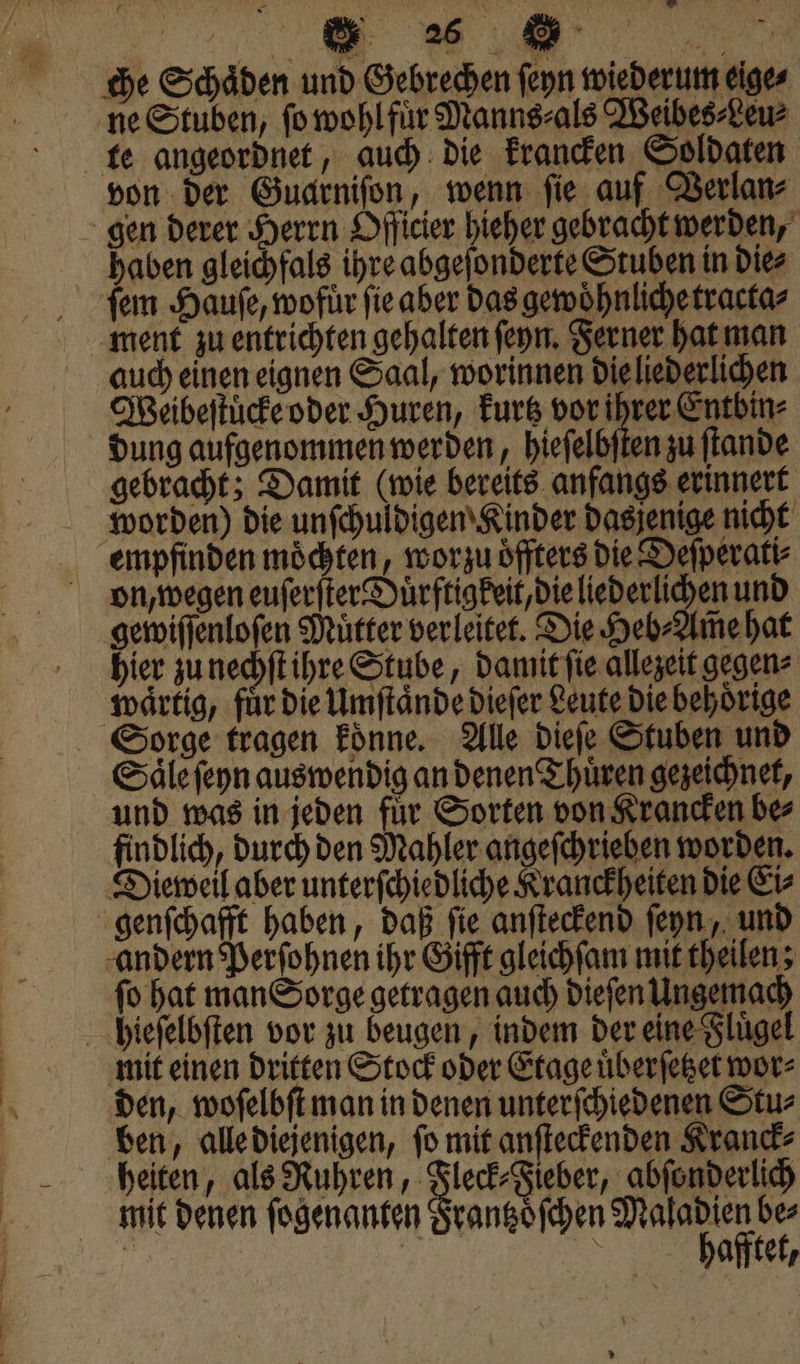 26
che Schaͤden und Gebrechen ſeyn wiederum eige⸗
ne Stuben, ſo wohl fuͤr Manns⸗als Weibes⸗Leu⸗
te angeordnet, auch die krancken Soldaten
von der Guarniſon, wenn ſie auf Verlan⸗
gen derer Herrn Officier hieher gebracht werden,
haben gleichfals ihre abgeſonderte Stuben in die⸗
ſem Hauſe, wofuͤr ſie aber das gewoͤhnliche tracta⸗
ment zu entrichten gehalten ſeyn. Ferner hat man
auch einen eignen Saal, worinnen die liederlichen
Weibeſtuͤcke oder Huren, kurtz vor ihrer Entbin⸗
dung aufgenommen werden, hieſelbſten zu ſtande
gebracht; Damit (wie bereits anfangs erinnert
worden) die unſchuldigen Kinder dasjenige nicht
empfinden moͤchten, worzu oͤffters die Deſperati⸗
on, wegen euſerſter Duͤrftigkeit, die liederlichen und
gewiſſenloſen Muͤtter verleitet. Die Heb⸗Am̃e hat
hier zu nechſt ihre Stube, damit ſie allezeit gegen⸗
waͤrtig, fuͤr die Umſtaͤnde dieſer Leute die behoͤrige
Sorge tragen koͤnne. Alle dieſe Stuben und
Saͤle ſeyn auswendig an denen Thuͤren gezeichnet,
und was in jeden fuͤr Sorten von Krancken be⸗
findlich, durch den Mahler angeſchrieben worden.
Dieweil aber unterſchiedliche Kranckheiten die Ei⸗
genſchafft haben, daß ſie anſteckend ſeyn, und
andern Perſohnen ihr Gifft gleichſam mit theilen;
ſo hat man Sorge getragen auch dieſen Ungemach
hieſelbſten vor zu beugen, indem der eine Fluͤgel
mit einen dritten Stock oder Etage uͤberſetzet wor⸗
den, woſelbſt man in denen unterſchiedenen Stu⸗
ben, alle diejenigen, ſo mit anſteckenden Kranck⸗
heiten, als Ruhren, Fleck⸗Fieber, abſonderlich
mit denen ſogenanten Frantzoͤſchen Maladien be⸗
hafftet,